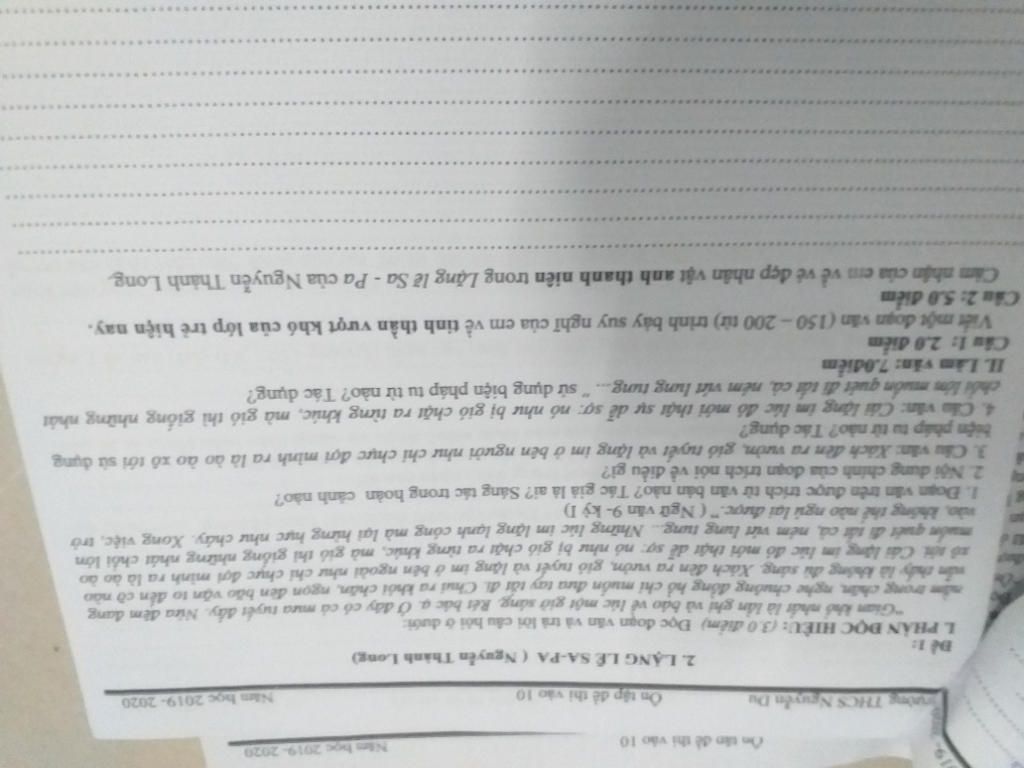 Ôn tập đề thi vào 10 Năm học 2019- 2020
Trường THCS Nguyễn Du Ôn tập đề thi vào 10 Năm học 2019- 2020
2. LẶNG LẼ SA-PA ( Nguyễn Thành Long)
Đề 1:
I. PHẦN ĐỌC HIỂU: (3.0 điểm) Đọc đoạn văn và trả lời câu hỏi ở dưới:
"Gian khổ nhất là lần ghi và báo về lúc một giờ sáng. Rét bác ạ. Ở đây có cả mưa tuyết đấy. Nửa đêm đang
nằm trong chăn, nghe chuông đồng hồ chỉ muốn đưa tay tắt đi. Chui ra khỏi chăn, ngọn đèn bão vặn to đến cỡ nào
vẫn thấy là không đủ sáng. Xách đèn ra vườn, gió tuyết và lặng im ở bên ngoài như chỉ chực đợi mình ra là ào ào
xô tới. Cái lặng im lúc đó mới thật dễ sợ: nó như bị gió chặt ra từng khúc, mà gió thì giống những nhát chổi lớn
muốn quét đi tất cả, ném vứt lung tung... Những lúc im lặng lạnh cóng mà lại hừng hực như cháy. Xong việc, trở
vào, không thể nào ngủ lại được." ( Ngữ văn 9- kỳ I)
1. Đoạn văn trên được trích từ văn bản nào? Tác giả là ai? Sáng tác trong hoàn cảnh nào?
2. Nội dung chính của đoạn trích nói về điều gì?
3. Câu văn: Xách đèn ra vườn, gió tuyết và lặng im ở bên người như chỉ chực đợi mình ra là ào ào xô tới sử dụng
biện pháp tu từ nào? Tác dụng?
4. Câu văn: Cái lặng im lúc đó mới thật sự dễ sợ: nó như bị gió chặt ra từng khúc, mà gió thì giống những nhát
chổi lớn muốn quét đi tất cả, ném vứt lung tung.... " sử dụng biện pháp tu từ nào? Tác dụng?
II. Làm văn: 7.0điểm
Câu 1: 2.0 điểm
Viết một đoạn văn (150 – 200 từ) trình bày suy nghĩ của em về tinh thần vượt khó của lớp trẻ hiện nay.
Câu 2: 5.0 điểm
Cảm nhận của em về vẻ đẹp nhân vật anh thanh niên trong Lặng lẽ Sa - Pa của Nguyễn Thành Long.